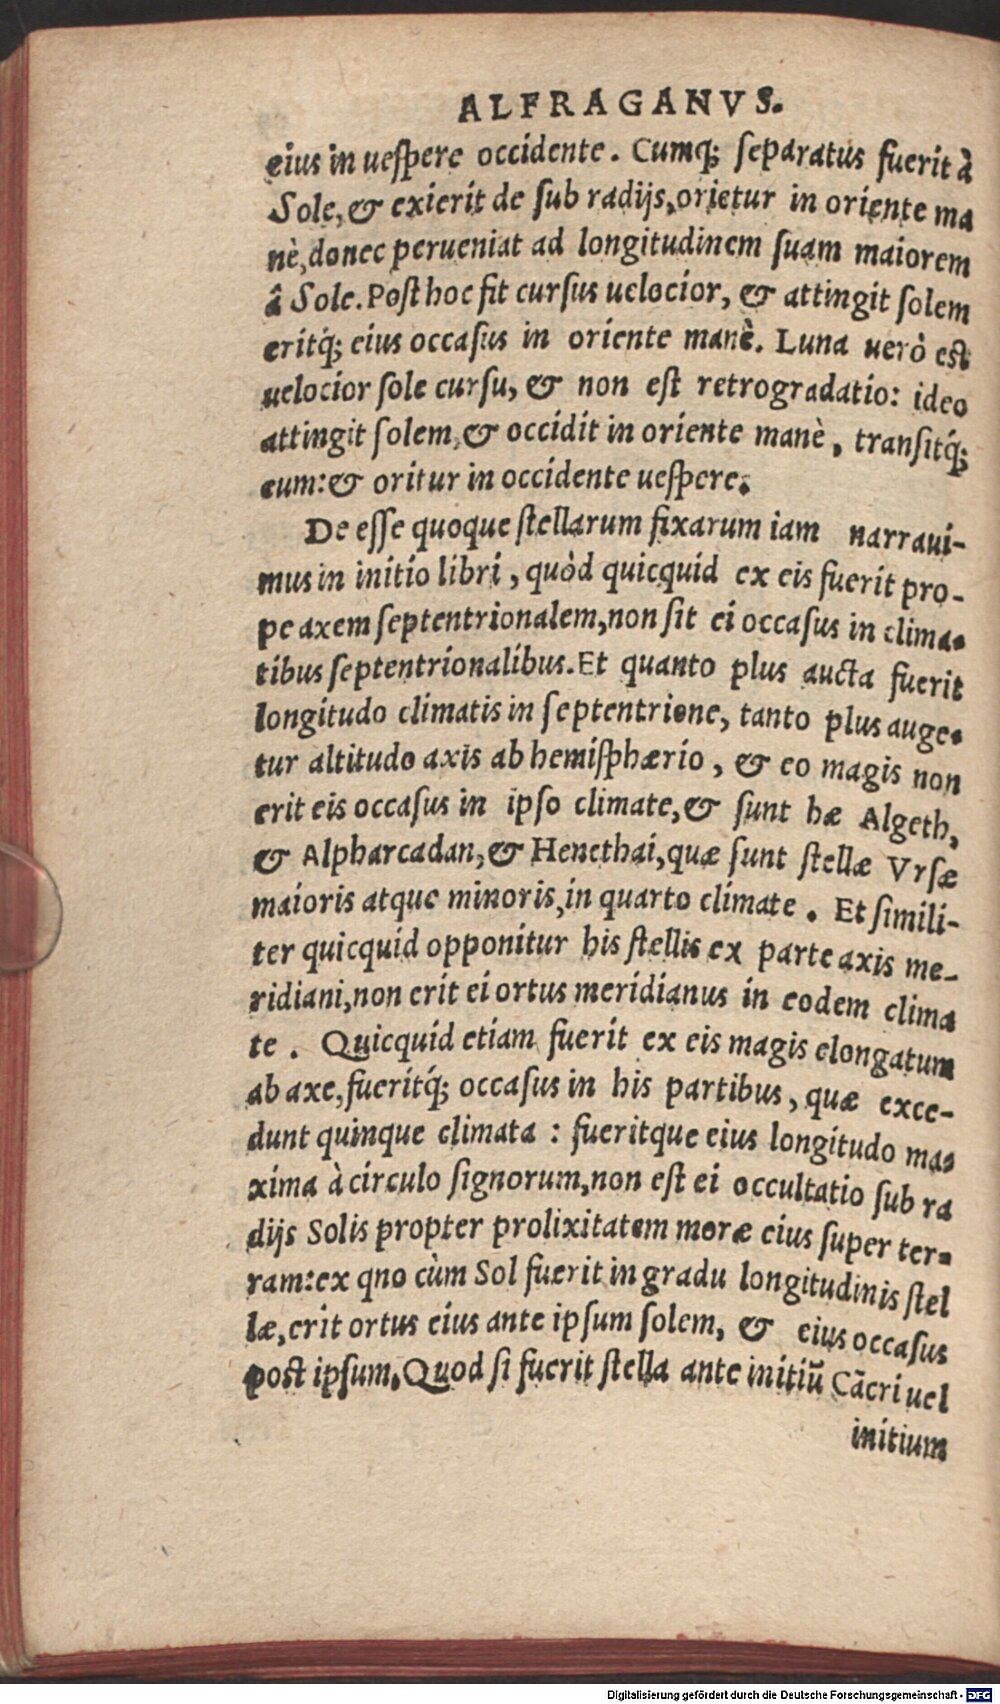 ALFRAGANVS.
eius in uespere occidente. Cumq́; separatus fuerit à
Sole, & exierit de sub radijs, orietur in oriente ma
nè, donec perueniat ad longitudinem suam maiorem
â Sole. Post hoc fit cursus uelocior, & attingit solem
eritq́; eius occasus in oriente manè. Luna uerò est
uelocior sole cursu, & non est retrogradatio: ideo
attingit solem, & occidit in oriente manè, transitq́;
eum: & oritur in occidente uespere.
De esse quoque stellarum fixarum iam narraui-
mus in initio libri, quòd quicquid ex eis fuerit pro-
pe axem septentrionalem, non sit ei occasus in clima-
tibus septentrionalibus. Et quanto plus aucta fuerit
longitudo climatis in septentrione, tanto plus auge-
tur altitudo axis ab hemisphærio, & eo magis non
erit eis occasus in ipso climate, & sunt hæ Algeth,
& Alpharcadan, & Henethai, quæ sunt stellæ Vrsæ
maioris atque minoris, in quarto climate. Et simili-
ter quicquid opponitur his stellis ex parte axis me-
ridiani, non erit ei ortus meridianus in eodem clima
te. Quicquid etiam fuerit ex eis magis elongatum
ab axe, fueritq́; occasus in his partibus, quæ exce-
dunt quinque climata: fueritque eius longitudo ma-
xima à circulo signorum, non est ei occultatio sub ra
dijs Solis propter prolixitatem moræ eius super ter-
ram: ex qno cùm Sol fuerit in gradu longitudinis stel
læ, erit ortus eius ante ipsum solem, & eius occasus
post ipsum. Quod si fuerit stella ante initiū Cācri uel
initium
Digitalisierung gefördert durch die Deutsche Forschungsgemeinschaft - DFG